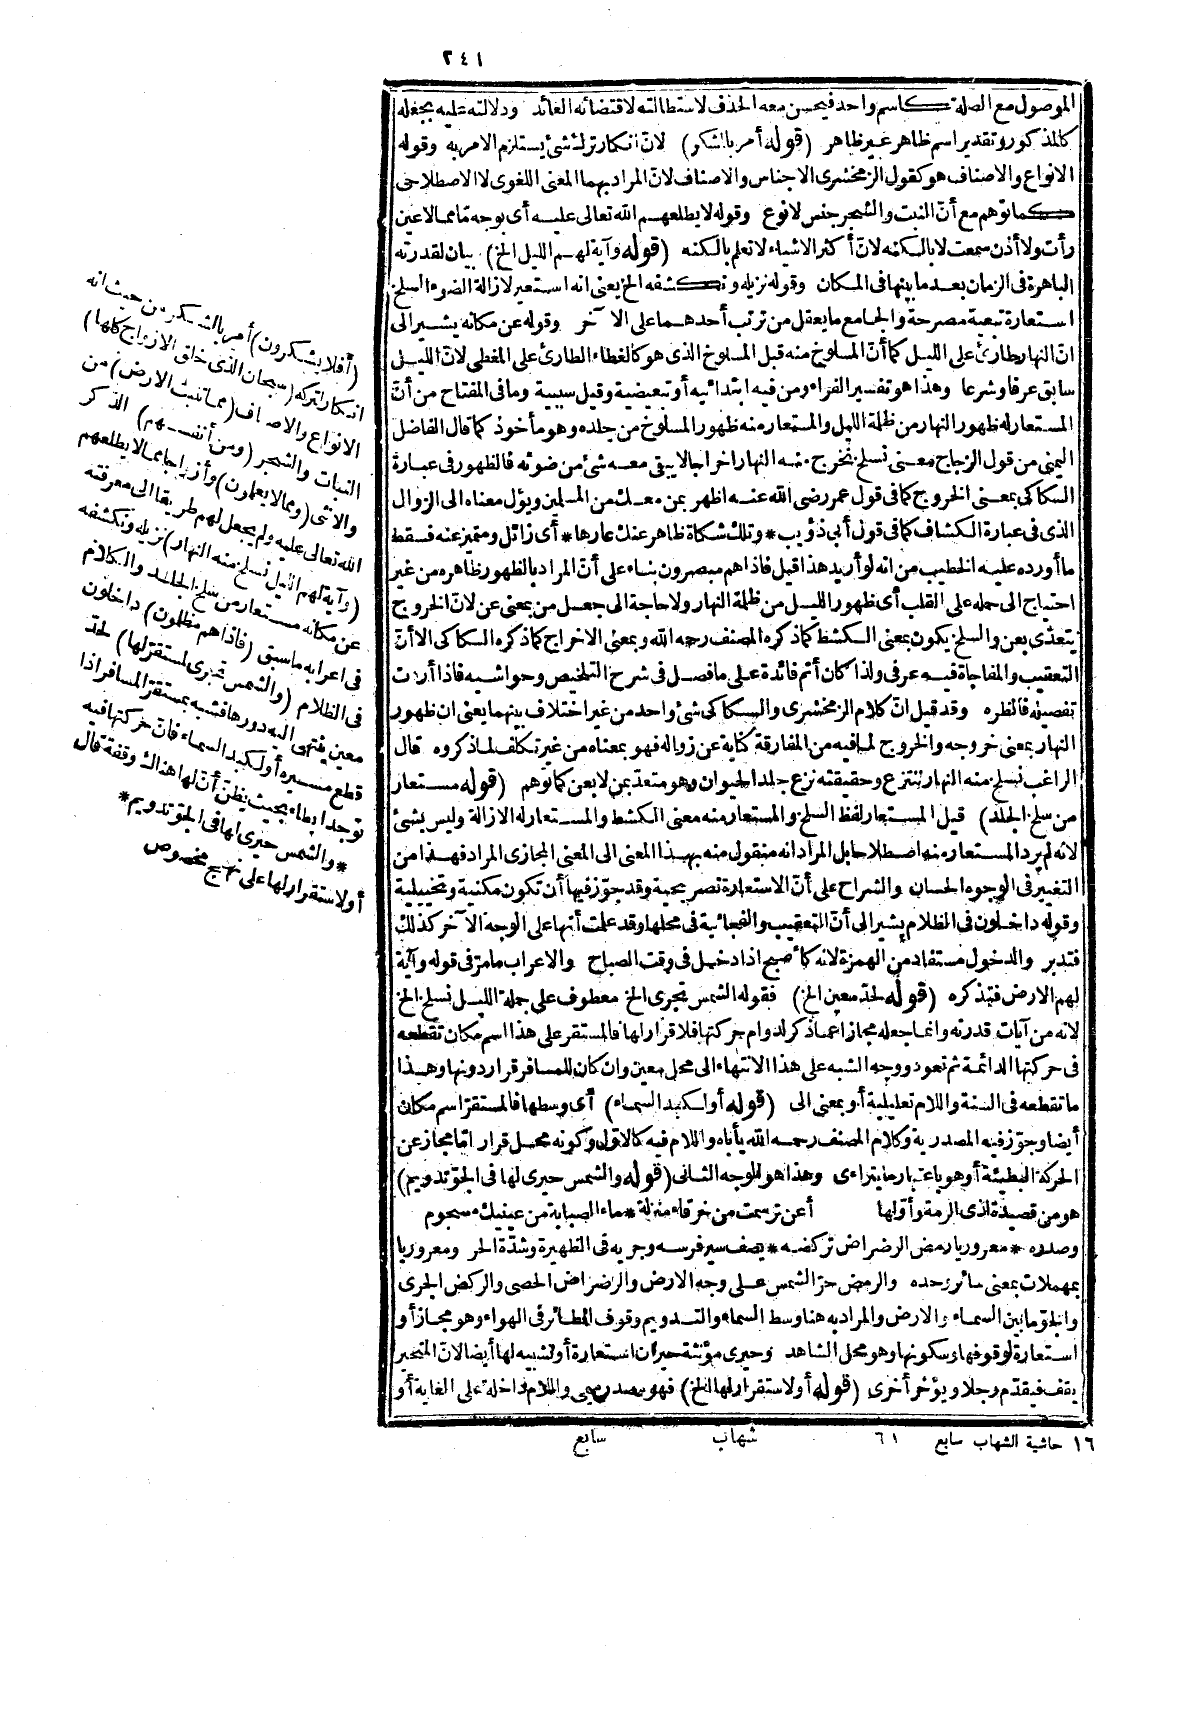 ٢٤١
الموصول مع الصلة كاسم واحد فيحسن معه الحذف لاستطالته لاقتضائه العائد ودلالته عليه يجعله
كالمذكور وتقدير اسم ظاهر غير ظاهر (قوله أمر بالشكر) لانّ انكار ترك شئ يستلزم الامر به وقوله
الانواع والاصناف هو كقول الزمخشرى الاجناس والاصناف لانّ المراد بهما المعنى اللغوى لا الاصطلاحى
كما توهم مع أنّ النبت والشجر جنس لا نوع وقوله لا يطلعهم الله تعالى عليه أى بوجه مّا مما لا عين
رأت ولا أذن سمعت لا بالكنه لانّ أكثر الاشياء لا تعلم بالكنه (قوله وآية لهم الليل الخ) بيان لقدرته
الباهرة فى الزمان بعد ما بينها فى المكان وقوله نزيله ونكشفه الخ يعنى انه استعير لازالة الضوء السلخ
استعارة تبعية مصرحة والجامع ما يعقل من ترتب أحدهما على الآخر وقوله عن مكانه يشير الى
انّ النهار طارئ على الليل كما أنّ المسلوخ منه قبل المسلوخ الذى هو كالغطاء الطارئ على المغطى لانّ الليل
سابق عرفا وشرعا وهذا هو تفسير الفراء ومن فيه ابتدائية أو تبعيضية وقيل سببية وما فى المفتاح من أنّ
المستعار له ظهور النهار من ظلمة الليل والمستعار منه ظهور المسلوخ من جلده وهو مأخوذ كما قال الفاضل
اليمنى من قول الزجاج معنى نسلخ نخرج منه النهار اخراجا لا يبقى معه شئ من ضوئه فالظهور فى عبارة
السكاكى بمعنى الخروج كما فى قول عمر رضى الله عنه اظهر بمن معك من المسلمين ويؤل معناه الى الزوال
الذى فى عبارة الكشاف كما فى قول أبى ذؤيب * وتلك شكاة ظاهر عنك عارها * أى زائل ومتميز عنه فسقط
ما أورده عليه الخطيب من انه لو أريد هذا قيل فاذا هم مبصرون بناء على أنّ المراد بالظهور ظاهره من غير
احتياج الى حمله على القلب أى ظهور الليل من ظلمة النهار ولا حاجة الى جعل من بمعنى عن لانّ الخروج
يتعدّى بعن والسلخ يكون بمعنى الكشط كما ذكره المصنف رحمه الله وبمعنى الاخراج كما ذكره السكاكى الا أنّ
التعقيب والمفاجأة فيه عرفى ولذا كان أتم فائدة على ما فصل فى شرح التلخيص وحواشيه فاذا أردت
تفصيله فانظره وقد قيل انّ كلام الزمخشرى والسكاكى شئ واحد من غير اختلاف بينهما يعنى ان ظهور
النهار بمعنى خروجه والخروج لما فيه من المفارقة كناية عن زواله فهو بمعناه من غير تكلف لما ذكروه قال
الراغب نسلخ منه النهار ننتزع وحقيقته نزع جلد الحيوان وهو متعد بمن لا بعن كما توهم (قوله مستعار
من سلخ الجلد) قيل المستعار لفظ السلخ والمستعار منه معنى الكشط والمستعار له الازالة وليس بشئ
لانه لم يرد المستعار منه اصطلاحا بل المراد انه منقول منه بهذا المعنى الى المعنى المجازى المراد فهذا من
التغيير فى الوجوه الحسان والشراح على أنّ الاستعارة تصريحية وقد جوّز فيها أن تكون مكنية وتخييلية
وقوله داخلون فى الظلام يشير الى أنّ التعقيب والفجائية فى محلها وقد علمت أنها على الوجه الآخر كذلك
فتدبر والدخول مستفاد من الهمزة لانه كأصبح اذا دخل فى وقت الصباح والاعراب ما مرّ فى قوله وآية
لهم الارض فتذكره (قوله لحدّ معين الخ) فقوله الشمس تجرى الخ معطوف على جملة الليل نسلخ الخ
لانه من آيات قدرته وانما جعله مجازا عما ذكر لدوام حركتها فلا قرار لها فالمستقر على هذا اسم مكان تقطعه
فى حركتها الدائمة ثم تعود ووجه الشبه على هذا الانتهاء الى محل معين وان كان للمسافر قرار دونها وهذا
ما تقطعه فى السنة واللام تعليلية أو بمعنى الى (قوله أو لكبد السماء) أى وسطها فالمستقرّ اسم مكان
أيضا وجوّز فيه المصدرية وكلام المصنف رحمه الله يأباه واللام فيه كالاول وكونه محل قرار امّا مجاز عن
الحركة البطيئة أو هو باعتبار ما يتراءى وهذا هو الوجه الثانى (قوله والشمس حيرى لها فى الجوّ تدويم)
هو من قصيدة لذى الرمة وأوّلها أعن ترسمت من خرقاء منزلة * ماء الصبابة من عينيك مسجوم
وصدره * معروريا رمض الرضراض تركضه * يصف سير فرسه وجريه فى الظهيرة وشدّة الحر ومعروريا
بمهملات بمعنى سائر وحده والرمض حرّ الشمس على وجه الارض والرضراض الحصى والركض الجرى
والجوّ ما بين السماء والارض والمراد به هنا وسط السماء والتدويم وقوف الطائر فى الهواء وهو مجاز أو
استعارة لوقوفها وسكونها وهو محل الشاهد وحيرى مؤنثة حيران استعارة أو تشبيه لها أيضا لانّ المتحير
يقف فيقدّم رجلا ويؤخر أخرى (قوله أو لاستقرار لها الخ) فهو مصدر ميمى واللام داخلة على الغاية أو
(أفلا يشكرون) أمر بالشكر من حيث انه
انكار لتركه (سبحان الذى خلق الازواج كلها)
الانواع والاصناف (مما تنبت الارض) من
النبات والشجر (ومن أنفسهم) الذكر
والانثى (ومما لا يعلمون) وأزواجا مما لا يطلعهم
الله تعالى عليه ولم يجعل لهم طريقا الى معرفته
(وآية لهم الليل نسلخ منه النهار) نزيله ونكشفه
عن مكانه مستعار من سلخ الجلد والكلام
فى اعرابه ما سبق (فاذا هم مظلمون) داخلون
فى الظلام (والشمس تجرى لمستقرّ لها) لحدّ
معين ينتهى اليه دورها فشبه بمستقرّ المسافر اذا
قطع مسيره أو لكبد السماء فانّ حركتها فيه
توجد ابطاء بحيث يظنّ أنّ لها هناك وقفة قال
* والشمس حيرى لها فى الجوّ تدويم *
أو لاستقرار لها على نهج مخصوص
١٦ حاشية الشهاب سابع ٦١ شهاب سابع